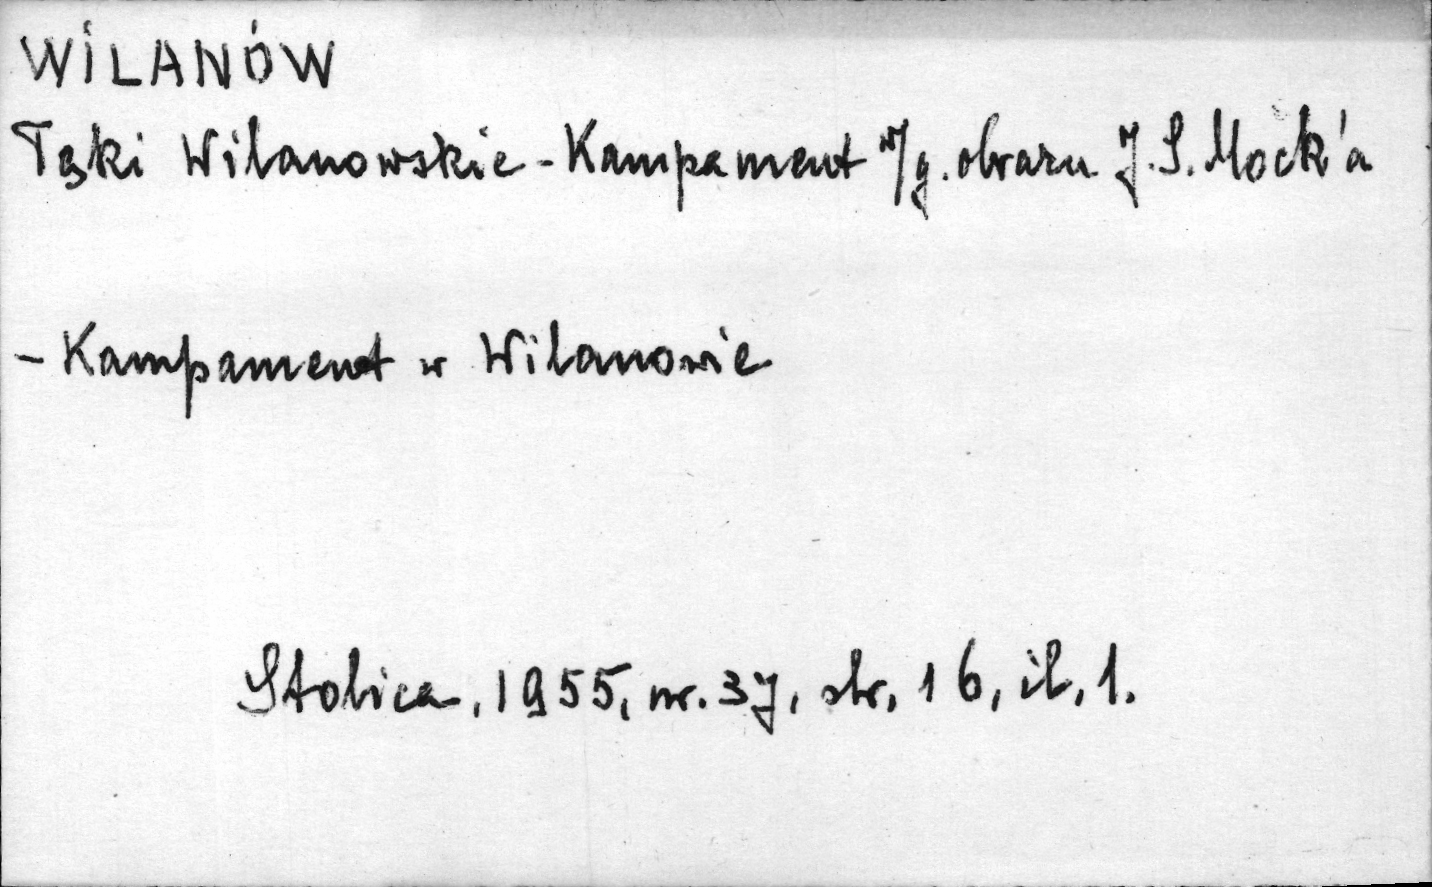 WILANÓW
Łąki Wilanowskie - Kampament w/g. obrazu J. S. Mock'a
- Kampament w Wilanowie
Stolica, 1955, nr. 37, str. 16, il. 1.